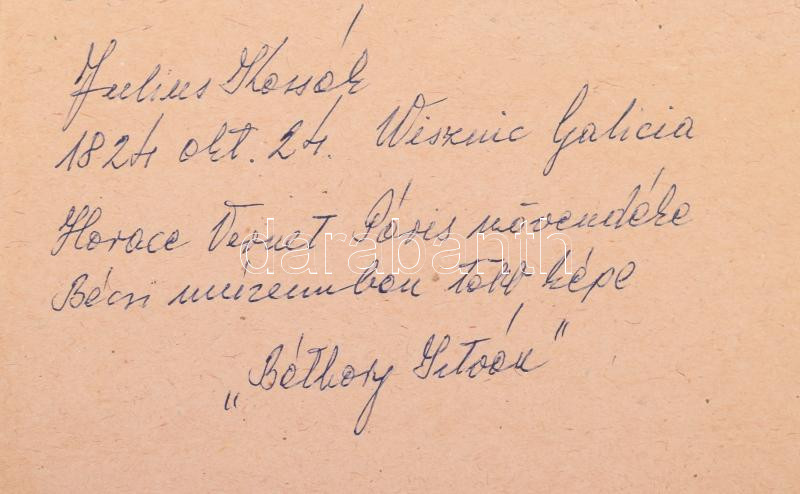 Julius Kossák
1824 okt. 24. Wisznic Galicia
Horace Vernet Páris növendéke
Bécsi múzeumban több képe
„Báthory István"
darabanth